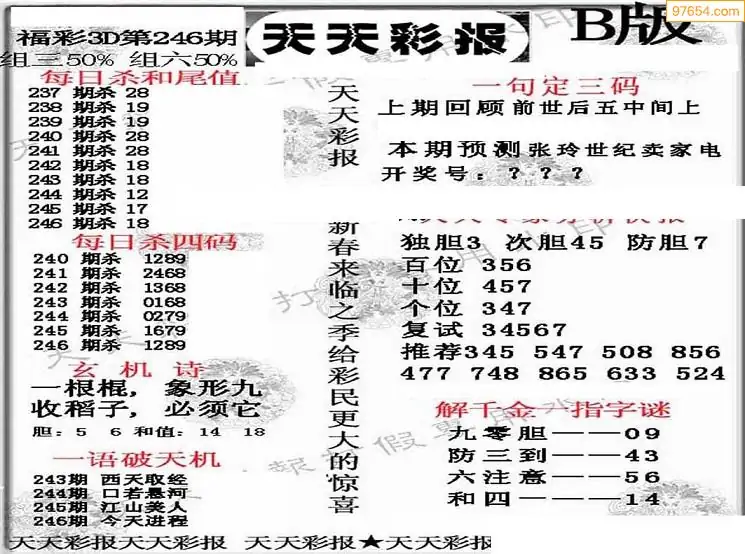 97654.com
福彩3D第246期
天天彩报
B版
组三50% 组六50%
每日杀和尾值
237 期杀 28
238 期杀 19
239 期杀 19
240 期杀 28
241 期杀 28
242 期杀 18
243 期杀 18
244 期杀 12
245 期杀 17
246 期杀 18
每日杀四码
240 期杀 1289
241 期杀 2468
242 期杀 1368
243 期杀 0168
244 期杀 0279
245 期杀 1679
246 期杀 1289
玄机诗
一根棍, 象形九
收稻子, 必须它
胆: 5 6 和值: 14 18
一语破天机
243期 西天取经
244期 口若悬河
245期 江山美人
246期 今天进程
天天彩报
新春来临之季给彩民更大的惊喜
一句定三码
上期回顾前世后五中间上
本期预测张玲世纪卖家电
开奖号: ? ? ?
独胆3 次胆45 防胆7
百位 356
十位 457
个位 347
复试 34567
推荐345 547 508 856
477 748 865 633 524
解千金一指字谜
九零胆——09
防三到——43
六注意——56
和四——14
天天彩报天天彩报 天天彩报★天天彩报